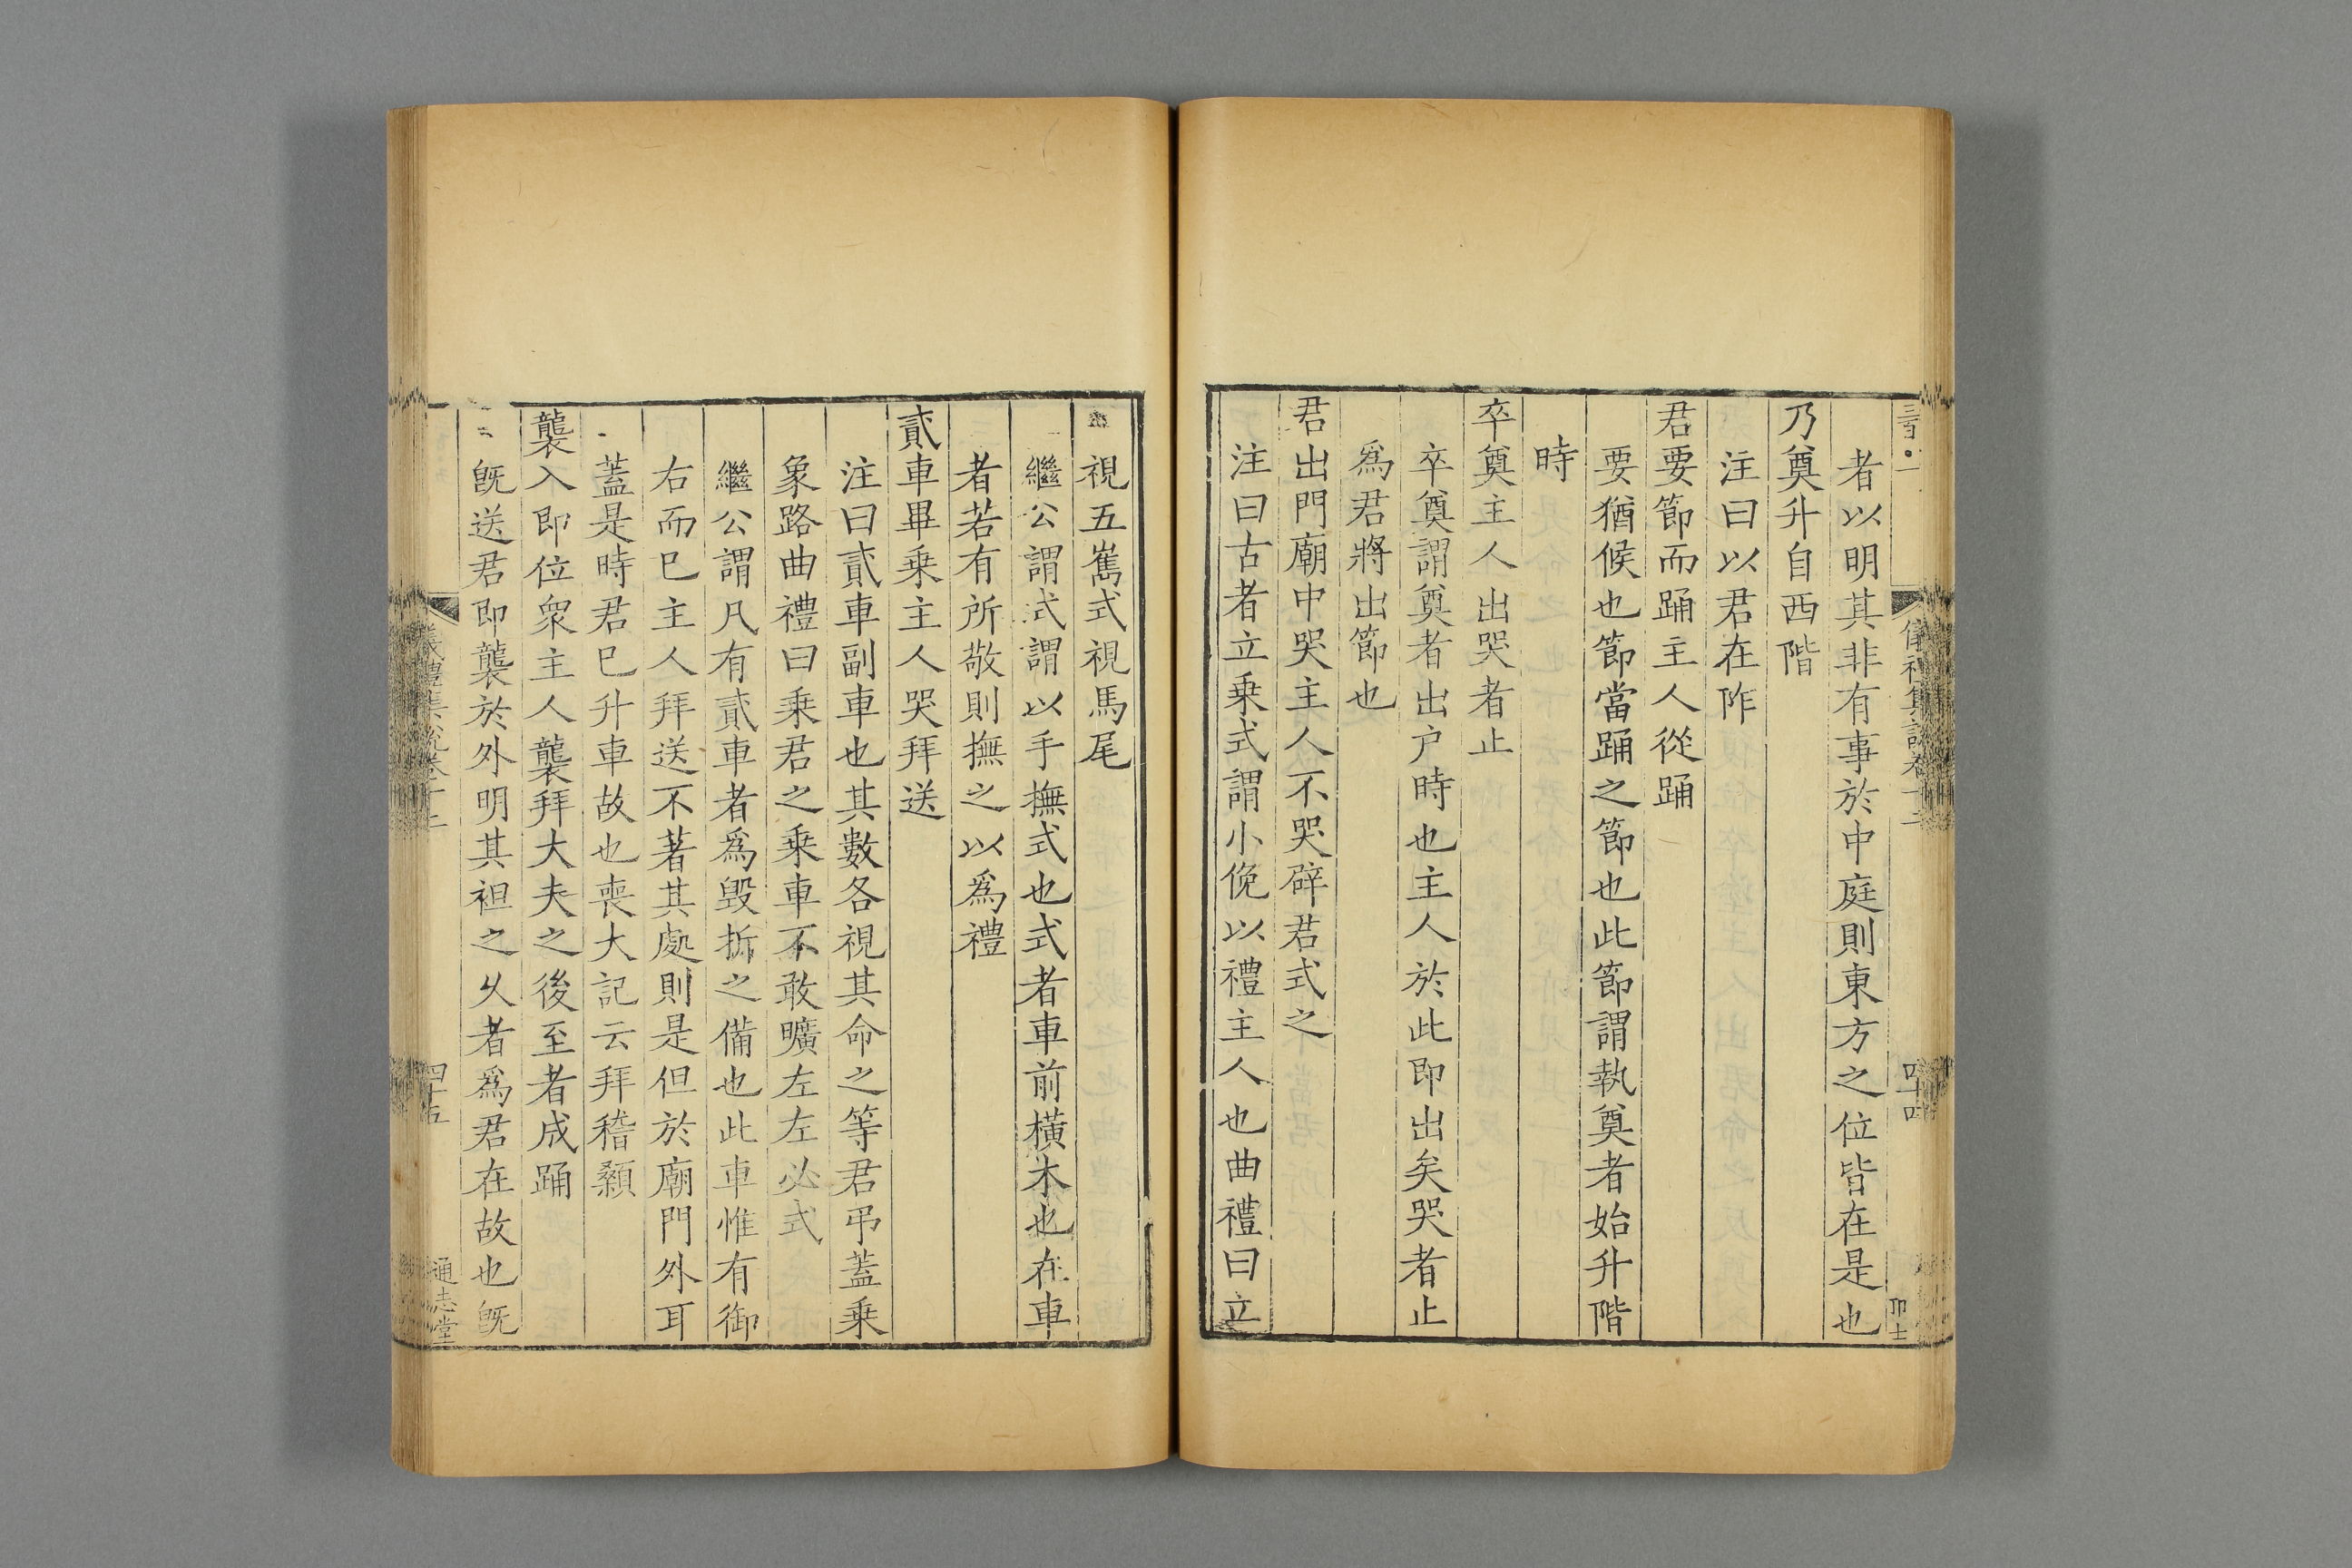 者以明其非有事於中庭則東方之位皆在是也
乃奠升自西階
注曰以君在阼
君要節而踊主人從踊
要猶候也節當踊之節也此節謂執奠者始升階
時
卒奠主人出哭者止
卒奠謂奠者出户時也主人於此即出矣哭者止
爲君將出節也
君出門廟中哭主人不哭辟君式之
注曰古者立乗式謂小俛以禮主人也曲禮曰立
視五巂式視馬尾
繼公謂式謂以手撫式也式者車前横木也在車
者若有所敬則撫之以爲禮
貳車畢乗主人哭拜送
注曰貳車副車也其數各視其命之等君弔蓋乗
象路曲禮曰乗君之乗車不敢曠左左必式
繼公謂凡有貳車者爲毁折之備也此車惟有御
右而巳主人拜送不著其處則是但於廟門外耳
蓋是時君巳升車故也喪大記云拜稽顙
襲入即位衆主人襲拜大夫之後至者成踊
旣送君即襲於外明其袒之乆者爲君在故也旣
儀禮集說卷十二
四十五
通志堂